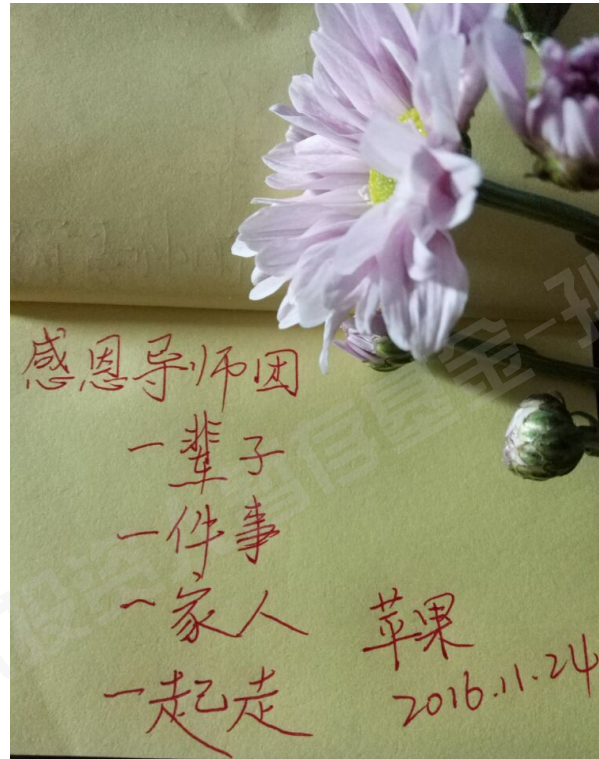 感恩导师团
一辈子
一件事
一家人
一起走
苹果
2016.11.24